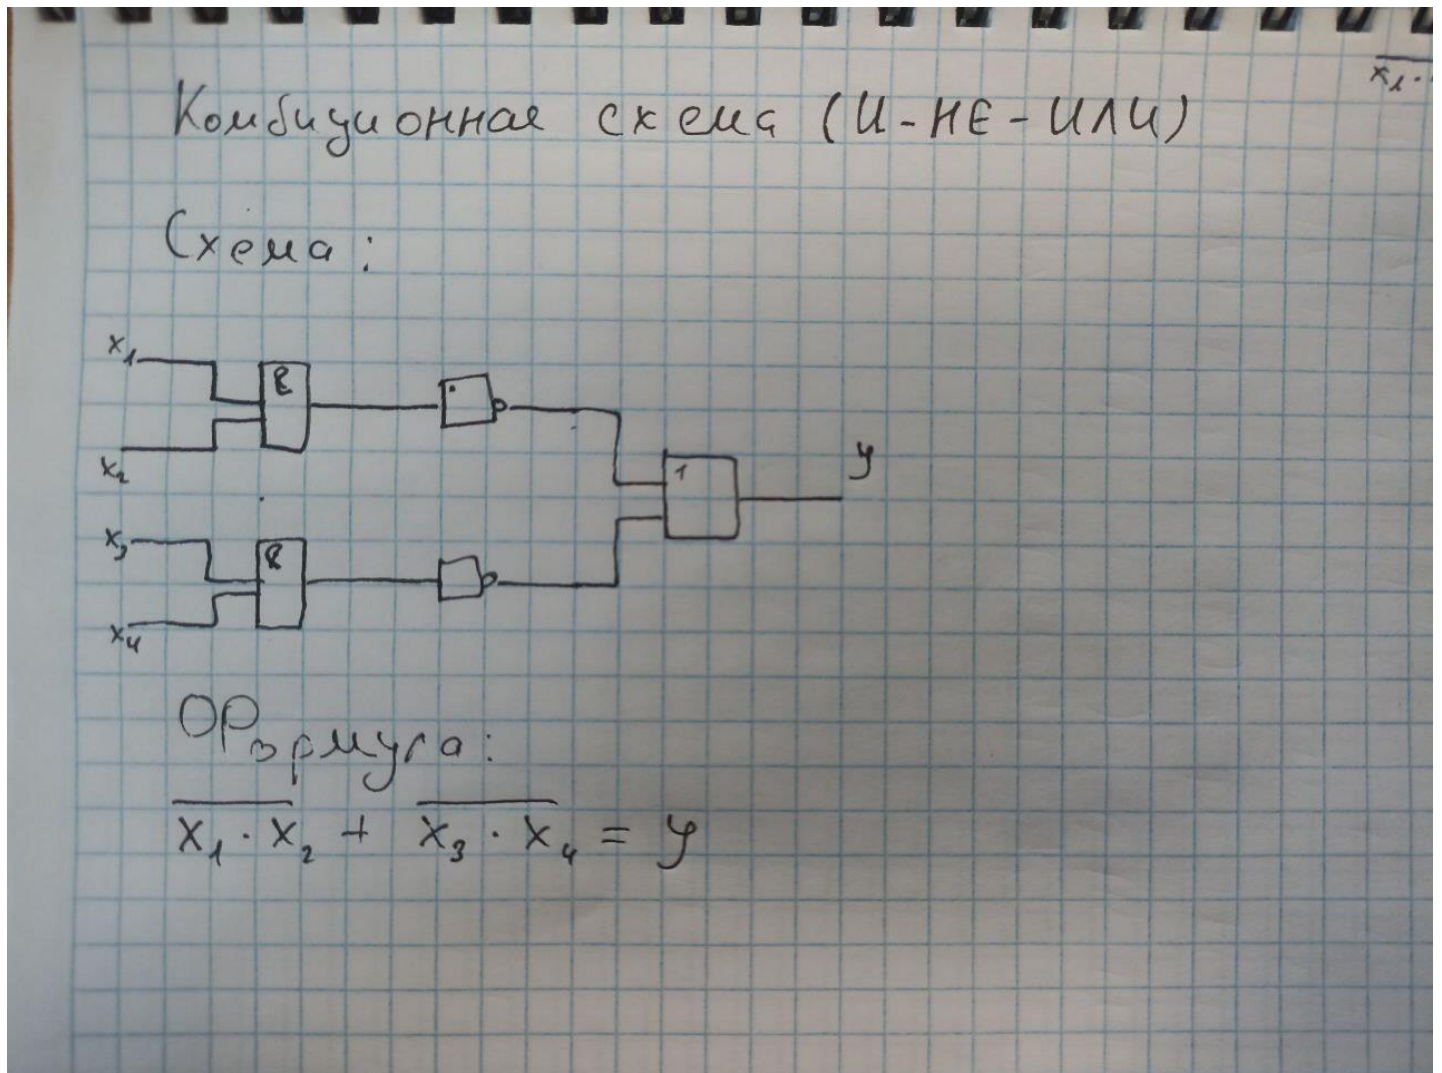 x₁ ·
Комбиционная схема (И-НЕ-ИЛИ)
Схема:
x₁
&
x₂
1
y
x₃
&
x₄
Формула:
x̅₁̅ ̅·̅ ̅x̅₂ + x̅₃̅ ̅·̅ ̅x̅₄ = y